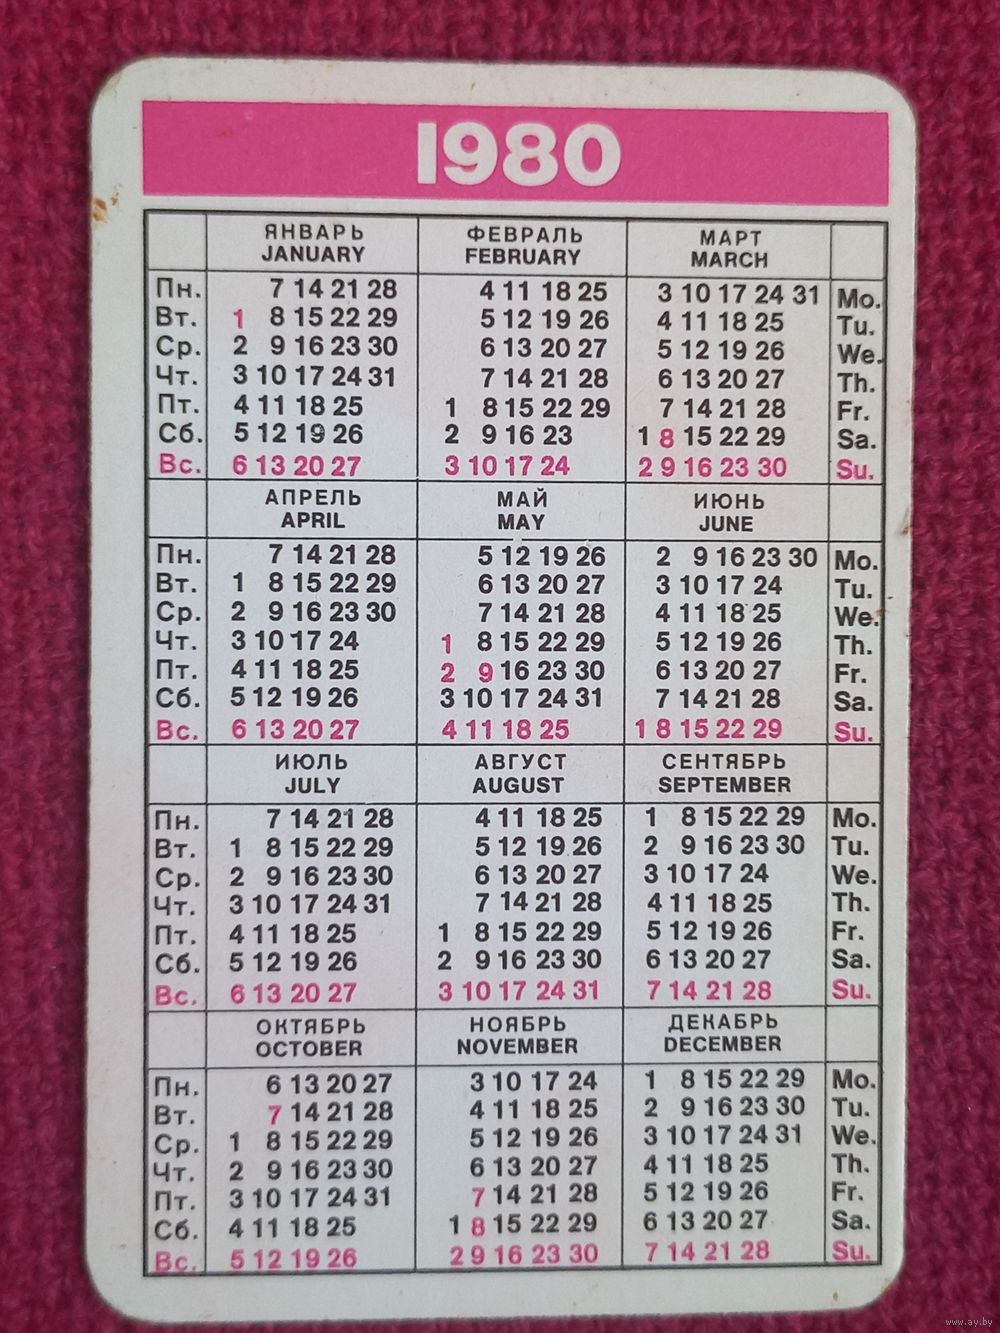 1980
ЯНВАРЬ ФЕВРАЛЬ МАРТ
JANUARY FEBRUARY MARCH
Пн. 7 14 21 28 4 11 18 25 3 10 17 24 31 Mo.
Вт. 1 8 15 22 29 5 12 19 26 4 11 18 25 Tu.
Ср. 2 9 16 23 30 6 13 20 27 5 12 19 26 We.
Чт. 3 10 17 24 31 7 14 21 28 6 13 20 27 Th.
Пт. 4 11 18 25 1 8 15 22 29 7 14 21 28 Fr.
Сб. 5 12 19 26 2 9 16 23 1 8 15 22 29 Sa.
Вс. 6 13 20 27 3 10 17 24 2 9 16 23 30 Su.
АПРЕЛЬ МАЙ ИЮНЬ
APRIL MAY JUNE
Пн. 7 14 21 28 5 12 19 26 2 9 16 23 30 Mo.
Вт. 1 8 15 22 29 6 13 20 27 3 10 17 24 Tu.
Ср. 2 9 16 23 30 7 14 21 28 4 11 18 25 We.
Чт. 3 10 17 24 1 8 15 22 29 5 12 19 26 Th.
Пт. 4 11 18 25 2 9 16 23 30 6 13 20 27 Fr.
Сб. 5 12 19 26 3 10 17 24 31 7 14 21 28 Sa.
Вс. 6 13 20 27 4 11 18 25 1 8 15 22 29 Su.
ИЮЛЬ АВГУСТ СЕНТЯБРЬ
JULY AUGUST SEPTEMBER
Пн. 7 14 21 28 4 11 18 25 1 8 15 22 29 Mo.
Вт. 1 8 15 22 29 5 12 19 26 2 9 16 23 30 Tu.
Ср. 2 9 16 23 30 6 13 20 27 3 10 17 24 We.
Чт. 3 10 17 24 31 7 14 21 28 4 11 18 25 Th.
Пт. 4 11 18 25 1 8 15 22 29 5 12 19 26 Fr.
Сб. 5 12 19 26 2 9 16 23 30 6 13 20 27 Sa.
Вс. 6 13 20 27 3 10 17 24 31 7 14 21 28 Su.
ОКТЯБРЬ НОЯБРЬ ДЕКАБРЬ
OCTOBER NOVEMBER DECEMBER
Пн. 6 13 20 27 3 10 17 24 1 8 15 22 29 Mo.
Вт. 7 14 21 28 4 11 18 25 2 9 16 23 30 Tu.
Ср. 1 8 15 22 29 5 12 19 26 3 10 17 24 31 We.
Чт. 2 9 16 23 30 6 13 20 27 4 11 18 25 Th.
Пт. 3 10 17 24 31 7 14 21 28 5 12 19 26 Fr.
Сб. 4 11 18 25 1 8 15 22 29 6 13 20 27 Sa.
Вс. 5 12 19 26 2 9 16 23 30 7 14 21 28 Su.
www.ay.by